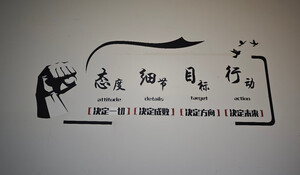 态度 细节 目标 行动
attitude details target action
【决定一切】【决定成败】【决定方向】【决定未来】